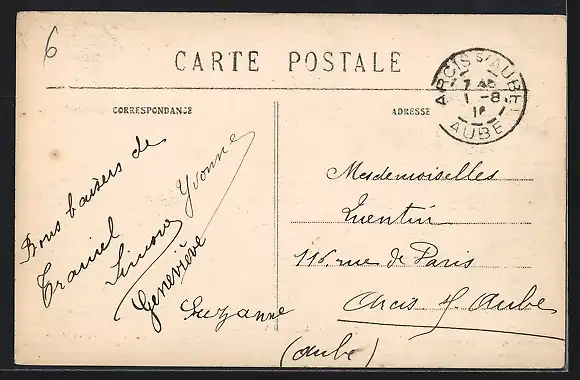 6
CARTE POSTALE
CORRESPONDANCE
ADRESSE
ARCIS S/AUBE
1 -8
AUBE
Bons baisers de
Trannel
Simone Yvonne
Geneviève
Suzanne
Mesdemoiselles
Quentin
116, rue de Paris
Arcis s/ Aube
(Aube)